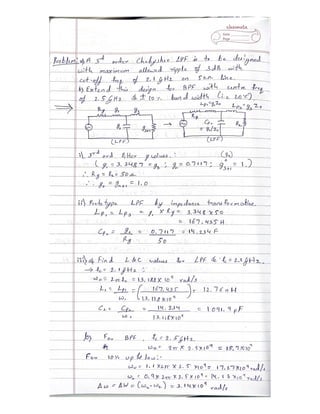 classmate
Date
Page
Problem: A 3rd order Chebyshev LPF is to be designed
with maximum allowed ripple of 3dB with
cut-off freq of 2.1 GHz on 50Ω line.
b) Extend this design for BPF with centre freq
of 2.5 GHz & ±10% band width (i.e. 20%)
Rg g1 g3
(LPF)
(LPF)
i) 3rd ord filter g values:
(g1 = 3.3487 = g3 ; g2 = 0.7117 ; g4 = 1.)
∴ Rg = RL = 50Ω
∴ g0 = gn+1 = 1.0
ii) Prototype LPF by impedance transformation.
LP1 = LP3 = g1 × Rg = 3.348 × 50
= 167.435 H
CP2 = g2 / Rg = 0.7117 / 50 = 14.234 F
iii) a) Find L & C values for LPF & fc = 2.1 GHz
→ fc = 2.1 GHz :
ωc = 2πfc = 13.188 × 10⁹ rad/s
L1 = LP1 / ωc = (167.435 / 13.188×10⁹) = 12.7 nH
C2 = CP2 / ωc = 14.234 / 13.188×10⁹ = 1.0791 pF
b) For BPF, fc = 2.5 GHz
ω0 = 2π × 2.5×10⁹ = 15.7×10⁹
For 10% up & low:
ωu = 1.1×2π × 2.5×10⁹ = 17.27×10⁹ rad/s
ωL = 0.9×2π×2.5×10⁹ = 14.13×10⁹ rad/s
Δω = BW = (ωu-ωL) = 3.14×10⁹ rad/s